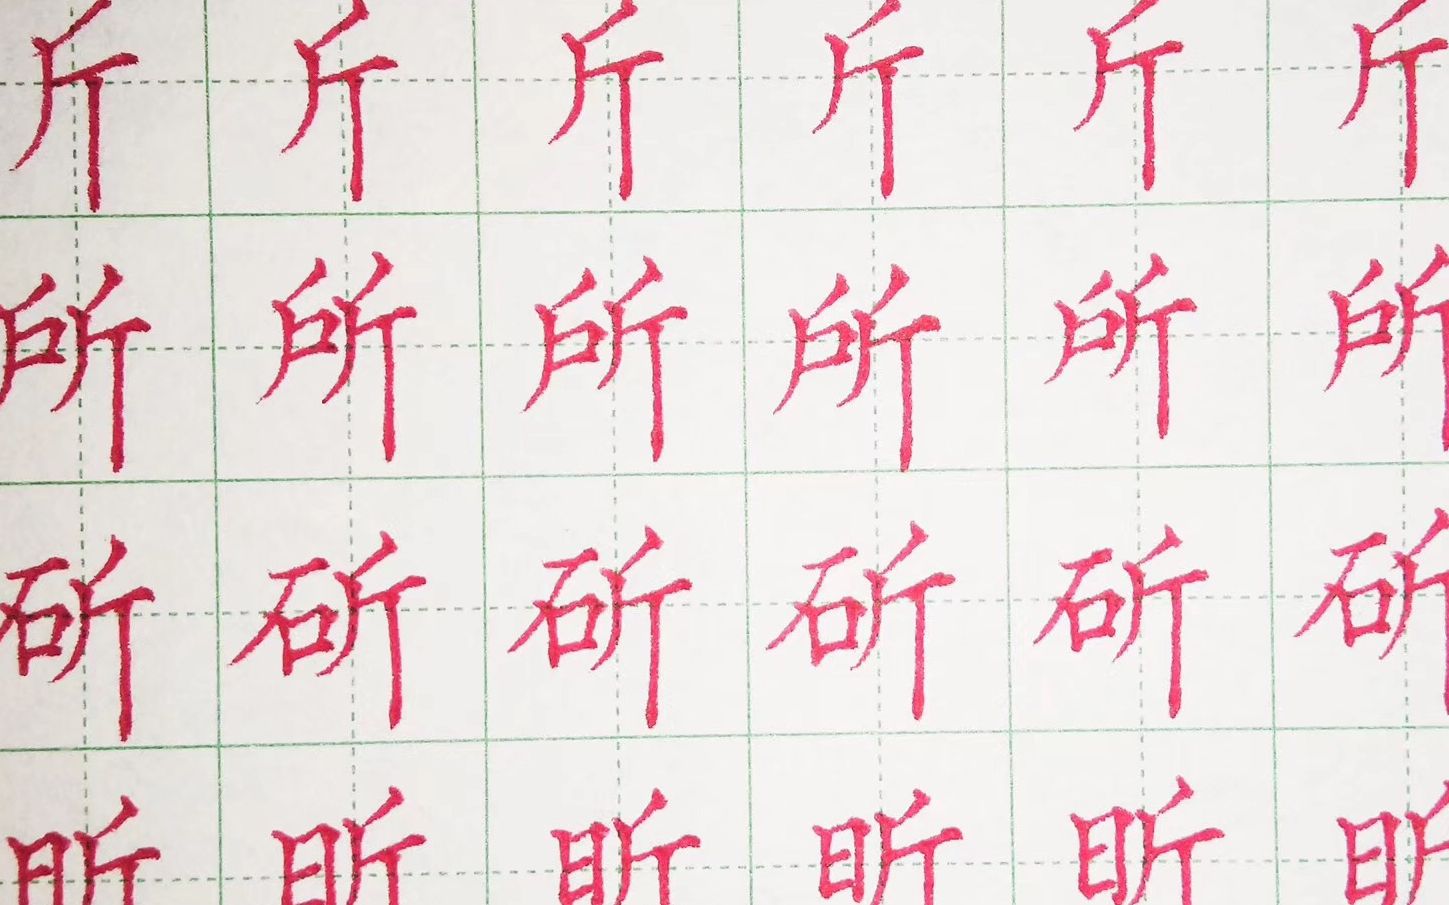 斤斤斤斤斤斤
所所所所所所
斫斫斫斫斫斫
昕昕昕昕昕昕